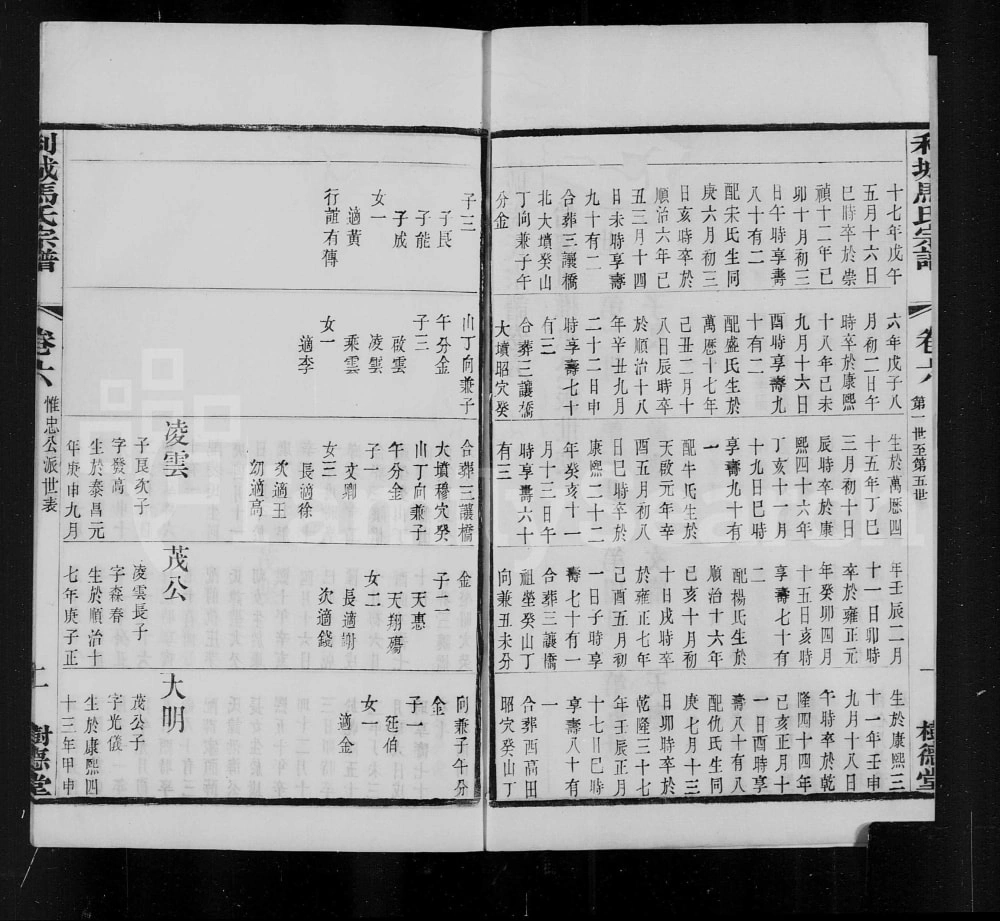 利城馬氏宗譜
卷六
第一世至第五世
一
樹德堂
十七年戊午
五月十六日
巳時卒於崇
禎十二年己
卯十月初三
日午時享壽
八十有二
配宋氏生同
庚六月初三
日亥時卒於
順治六年己
丑三月十四
日未時享壽
九十有二
合葬三讓橋
北大墳癸山
丁向兼子午
分金
六年戊子八
月初二日午
時卒於康熙
十八年己未
九月十六日
酉時享壽九
十有二
配盛氏生於
萬曆十七年
己丑二月十
八日辰時卒
於順治十八
年辛丑九月
二十二日申
時享壽七十
有三
合葬三讓橋
大墳昭穴癸
生於萬曆四
十五年丁巳
三月初十日
辰時卒於康
熙四十六年
丁亥十一月
十九日巳時
享壽九十有
一
配牛氏生於
天啟元年辛
酉五月初八
日巳時卒於
康熙二十二
年癸亥十一
月十三日午
時享壽六十
有三
年壬辰二月
十一日卯時
卒於雍正元
年癸卯四月
十五日亥時
享壽七十有
二
配楊氏生於
順治十六年
己亥十月初
十日戌時卒
於雍正七年
己酉五月初
一日子時享
壽七十有一
合葬三讓橋
祖塋癸山丁
向兼丑未分
生於康熙三
十一年壬申
九月十八日
午時卒於乾
隆四十四年
己亥正月十
一日酉時享
壽八十有八
配仇氏生同
庚七月十三
日卯時卒於
乾隆三十七
年壬辰正月
十七日巳時
享壽八十有
一
合葬西高田
昭穴癸山丁
子三
子良
子能
子成
女一
適黃
行誼有傳
山丁向兼子
午分金
子三
啟雲
凌雲
乘雲
女一
適李
合葬三讓橋
大墳穆穴癸
山丁向兼子
午分金
子一
文鼎
女三
長適徐
次適王
幼適高
凌雲
子良次子
字發高
生於泰昌元
年庚申九月
金
子二
天惠
天翔殤
女二
長適謝
次適錢
茂公
凌雲長子
字森春
生於順治十
七年庚子正
向兼子午分
金
子一
廷伯
女一
適金
大明
茂公子
字光儀
生於康熙四
十三年甲申
利城馬氏宗譜
卷六
惟忠公派世表
二
樹德堂